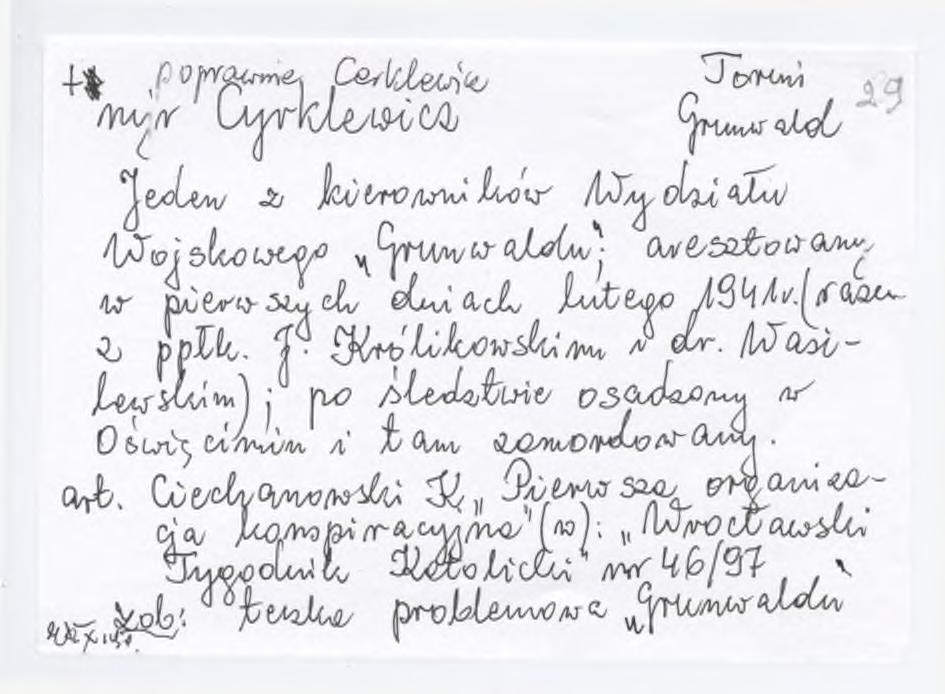 + poprawnie Cerklewicz Toruń
mjr Cyrklewicz Grunwald 29
Jeden z kierowników Wydziału
Wojskowego „Grunwaldu”; aresztowany
w pierwszych dniach lutego 1941r. (razem
z ppłk. J. Królikowskim i dr. Wasi-
lewskim); po śledztwie osadzony w
Oświęcimiu i tam zamordowany.
art. Ciechanowski K. „Pierwsza organiza-
cja konspiracyjna” (w): „Wrocławski
Tygodnik Katolicki” nr 46/97
Zob: teczka problemowa „Grunwaldu”